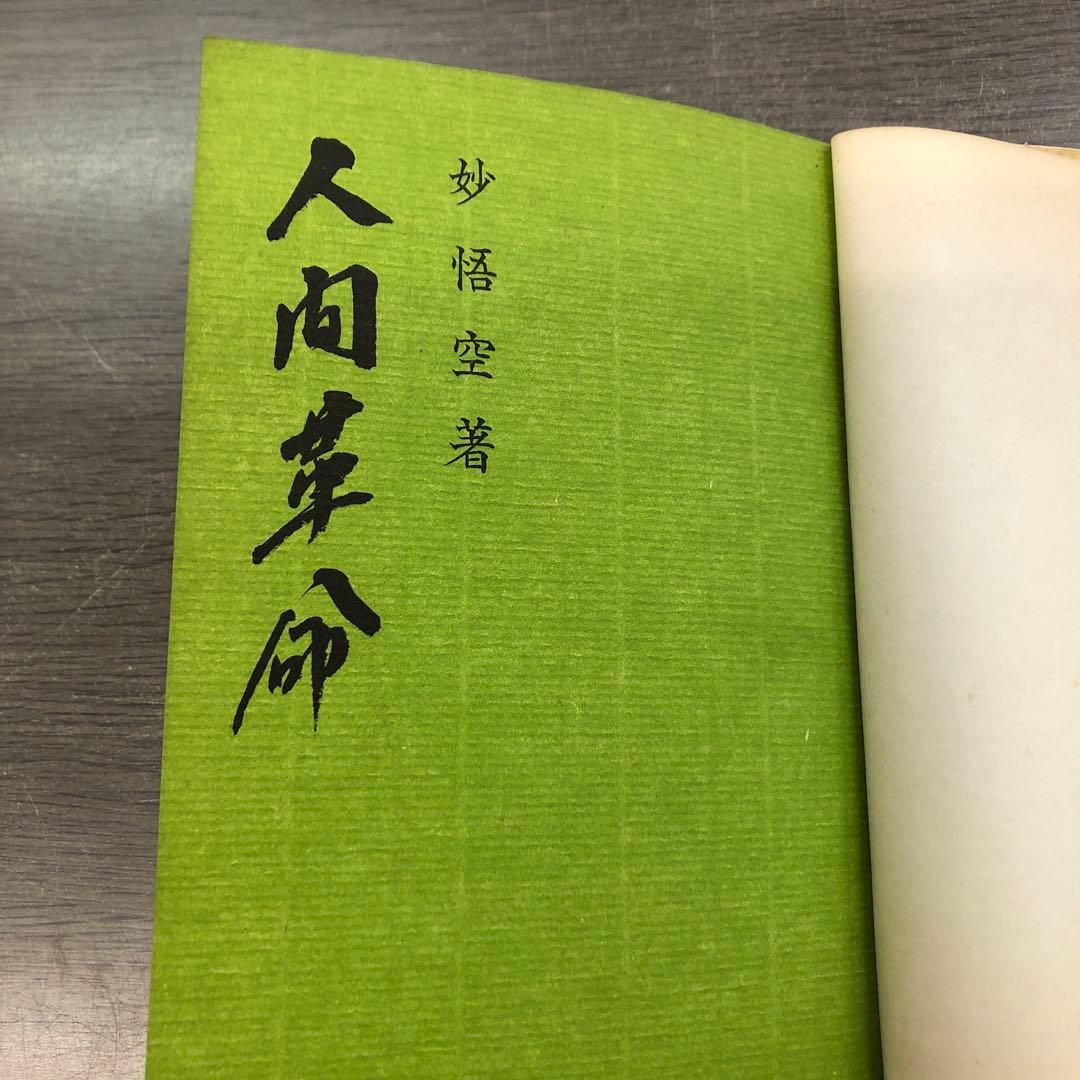 妙悟空著
人間革命